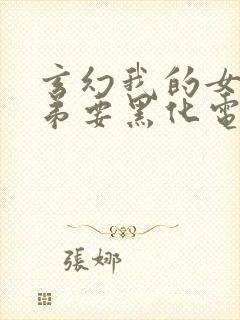 玄幻我的女
弟要黑化電
張娜